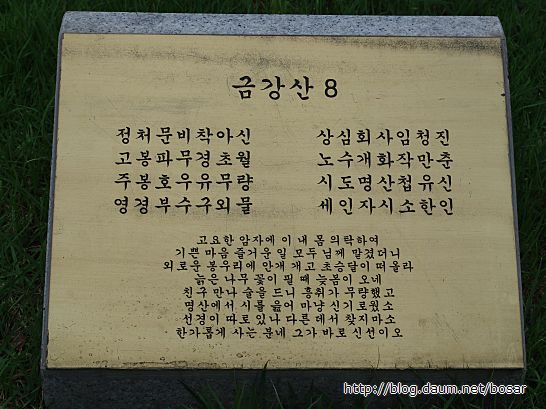 금강산 8
정처문비착아신 상심회사임청진
고봉파무경초월 노수개화작만춘
주봉호우유무량 시도명산첩유신
영경부수구외물 세인자시소한인
고요한 암자에 이 내 몸 의탁하여
기쁜 마음 즐거운 일 모두 님께 맡겼더니
외로운 봉우리에 안개 개고 초승달이 떠올라
늙은 나무 꽃이 필 때 늦봄이 오네
친구 만나 술을 드니 흥취가 무량했고
명산에서 시를 읊어 마냥 신기로웠소
선경이 따로 있나 다른 데서 찾지마소
한가롭게 사는 분네 그가 바로 신선이오
http://blog.daum.net/bosar